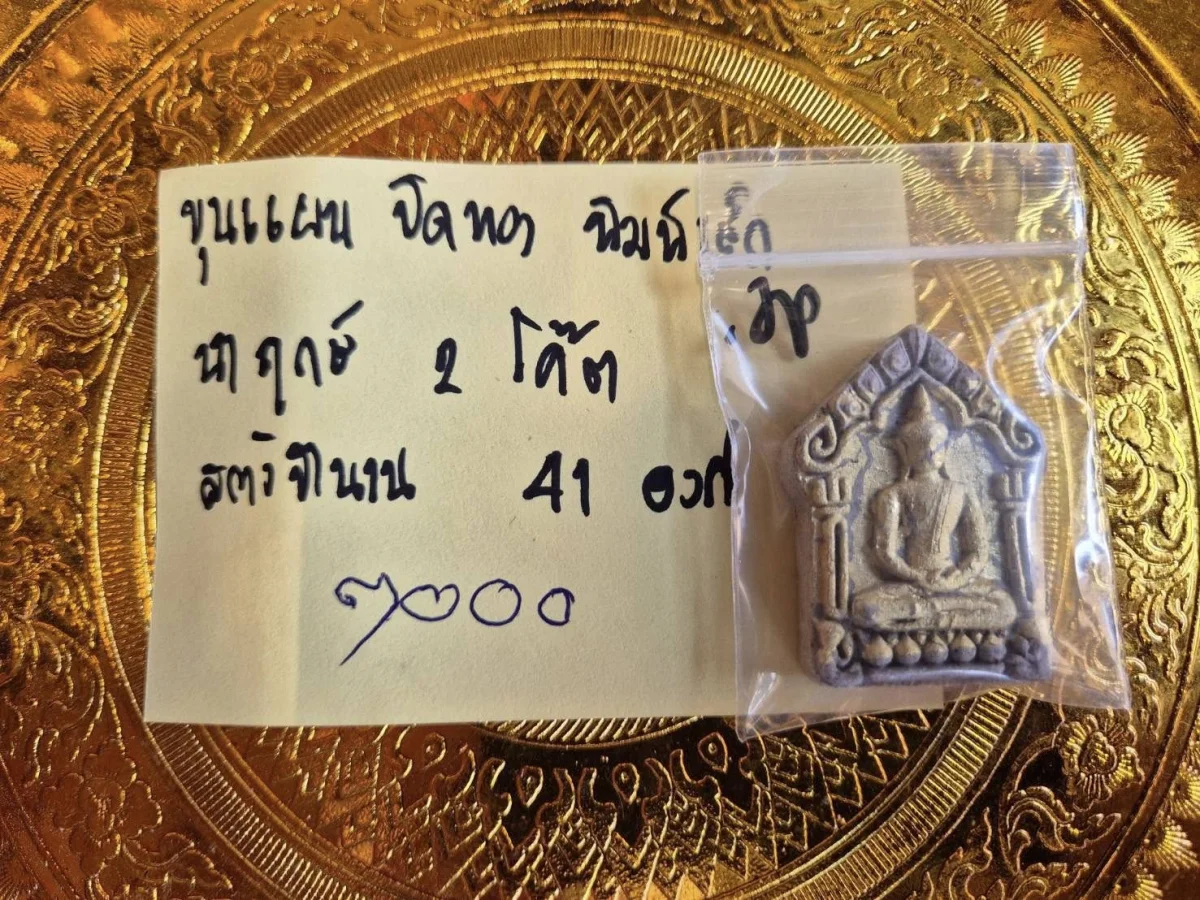 ขุนแผน ปิดทอง พิมพ์เล็ก
นำฤกษ์ 2 โค๊ต
สร้างจำนวน 41 องค์
๗๐๐๐